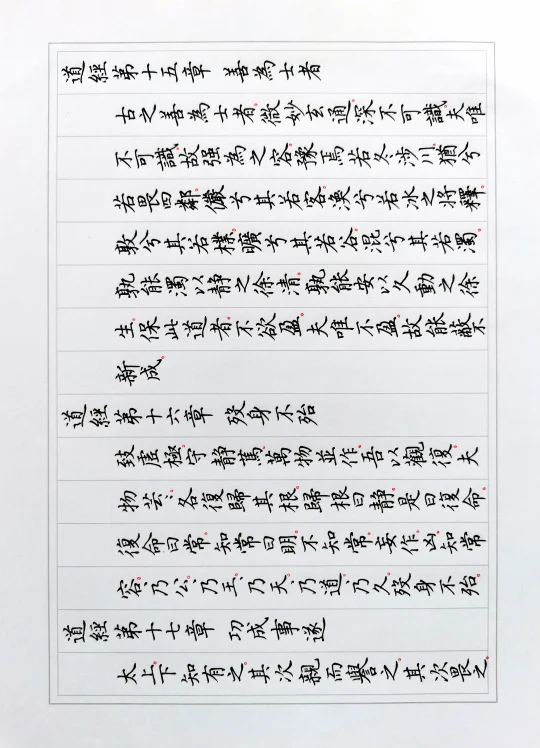 道經第十五章 善為士者
古之善為士者。微妙玄通。深不可識。夫唯
不可識。故强為之容。豫焉若冬涉川。猶兮
若畏四鄰。儼兮其若容。渙兮若冰之將釋。
敦兮其若樸。曠兮其若谷。混兮其若濁。
孰能濁以静之徐清。孰能安以久動之徐
生。保此道者。不欲盈。夫唯不盈。故能蔽不
新成。
道經第十六章 歿身不殆
致虛極。守静篤。萬物並作。吾以觀復。夫
物芸〻。各復歸其根。歸根曰静。是曰復命。
復命曰常。知常曰明。不知常。妄作。凶。知常
容。乃公。乃王。乃天。乃道。乃久。歿身不殆。
道經第十七章 功成事遂
太上。下知有之。其次親而譽之。其次畏之。